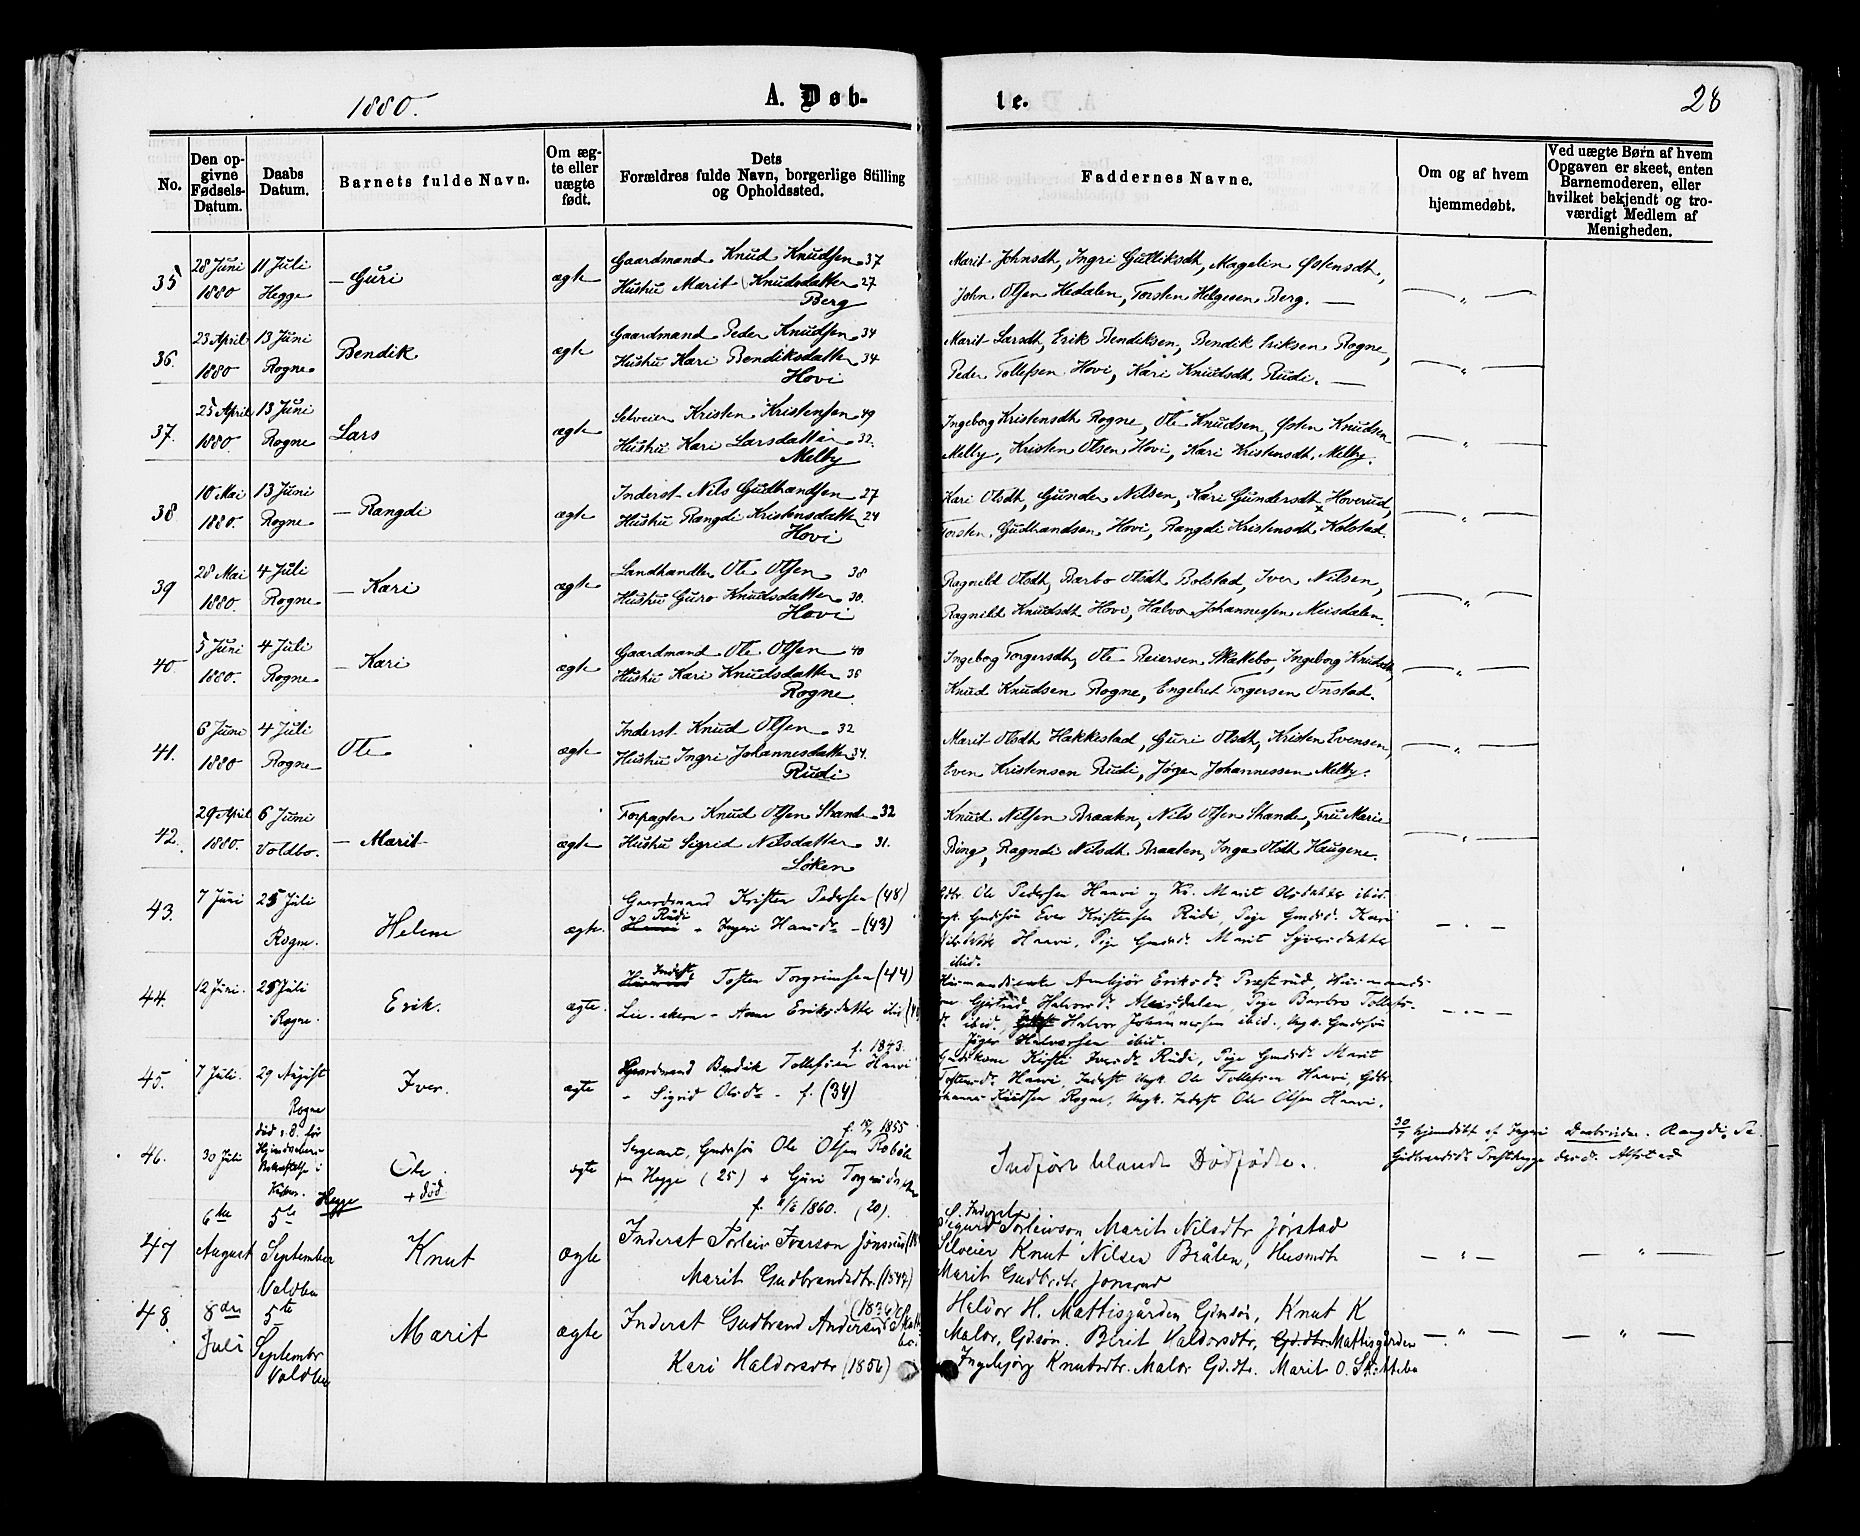 1880.
A. Døb-
te.
28
No.
Den opgivne Fødsels-Datum.
Daabs Datum.
Barnets fulde Navn.
Om ægte eller uægte født.
Dets Forældres fulde Navn, borgerlige Stilling og Opholdssted.
Faddernes Navne.
Om og af hvem hjemmedøbt.
Ved uægte Børn af hvem Opgaven er skeet, enten Barnemoderen, eller hvilket bekjendt og troværdigt Medlem af Menigheden.
35 28 Juni 1880 11 Juli Hegge – Guri ægte
Gaardmand Knud Knudsen 37
Hustru Marit Knudsdatter 27
Berg
Marit Johnsdt, Ingri Gulliksdt, Magelin Østensdt,
John Olsen Hedalen, Torsten Helgesen Berg. —
— " —
36. 23 April 1880 13 Juni Rogne Bendik ægte
Gaardmand Peder Knudsen 34
Hustru Kari Bendiksdatter 34
Hovi
Marit Larsdt, Erik Bendiksen, Bendik Eriksen Rogne,
Peder Tollefsen Hovi, Kari Knudsdt Rudi. —
— " —
37. 25 April 1880. 13 Juni Rogne Lars ægte
Selveier Kristen Kristensen 49
Hustru Kari Larsdatter 32.
Melby
Ingeborg Kristensdt Rogne, Ole Knudsen, Østen Knudsen
Melby, Kristen Olsen Hovi, Kari Kristensdt Melby.
— " —
38 10 Mai 1880. 13 Juni Rogne – Rangdi ægte
Inderst Nils Gudbrandsen 27
Hustru Rangdi Kristensdatter 24
Hovi
Kari Olsdt, Gunder Nilsen, Kari Gundersdt Hoverud,
Torsten Gudbrandsen Hovi, Rangdi Kristensdt Kolstad.
— " —
39 28 Mai 1880. 4 Juli Rogne – Kari ægte
Landhandler Ole Olsen 38
Hustru Guro Knudsdatter 30.
Hovi
Ragnild Olsdt, Barbo Olsdt Bolstad, Iver Nilsen,
Ragnild Knudsdt Hovi, Halvor Johannessen Meisdalen.
— " —
40 5 Juni 1880. 4 Juli Rogne – Kari ægte
Gaardmand Ole Olsen 40
Hustru Kari Knudsdatter 36
Rogne.
Ingeborg Torgersdt, Ole Reiersen Skattebo, Ingeborg Knudsdt,
Knud Knudsen Rogne, Engebret Torgersen Onstad.
— " —
41. 6 Juni 1880 4 Juli Rogne Ole ægte
Inderst Knud Olsen 32
Hustru Ingri Johannesdatter 34.
Rudi
Marit Olsdt Hakkestad, Guri Olsdt, Kristen Evensen,
Even Kristensen Rudi, Jøger Johannessen Melby.
— " —
42. 29 April 1880. 6 Juni Voldbo. – Marit ægte
Forpagter Knud Olsen Strande 32
Hustru Sigrid Nilsdatter 31.
Løken
Knud Nilsen Braaten, Nils Olsen Strande, Fru Marie
Ring, Ragndi Nilsdt Braaten, Inga Olsdt Haugene.
— " —
43. 7 Juni 25 Juli Rogne. Helene ægte.
Gaardmand Kristen Pedersen (48)
Rudi
" Ingri Hansd. – (43)
Ole Pedersen Haavi og Ko. Marit Olsdatter ibid.
Ungk. Gaardsøn Even Kristensen Rudi, Pige Gaardsd. Kari
Haavi, Pige Gaardsd. Marit Syversdatter
ibid.
— . —
44. 12 Juni. 25 Juli Rogne. Erik. ægte.
Inderst Tosten Torgrimsen (44)
Anne Eriksdatter ibid
Ambjør Eriksd. Præstrud, Husmands-
Gjertrud Halvorsd. Meisdalen, Pige Barbro Tollefs-
d. ibid., Halvor Johannessen ibid., Ungk. Gaardsøn
Jøger Halvorsen ibid.
— . —
45. 7 Juli. 29 August Rogne Iver. ægte
f. 1843.
Gaardmand Bendik Tollefsen Haavi
" Sigrid Olsd. – f. (34)
Gaardkone Kirsti Iversd. Rudi, Pige Gaardsd. Marit
Tostensd. Haavi, Inderst Ungk. Ole Tollefsen Haavi, Gdbr.
Johannes Knudsen Rogne, Ungk. Inderst Ole Olsen Haavi.
46. 30 Juli Ole + død. ægte
død s. D. før Stadfæstelse i Kirken.
f. 1855
Sergeant, Gaardsøn Ole Olsen Robøle
paa Hegge (25) + Guri
f. 1860. (20).
Indført blandt Dødfødte.
30/7 hjemdøbt af Ingri
Gudbrandsd.
Rangdi Pe-
dersd.
47 6te August Hegge 5te September Voldbu Knut ægte
Inderst Torleiv Ivarson
Marit Gudbrandsdtr. (1847)
Sigurd Torleivson, Marit Nilsdtr Jørstad
Selveier Knut Nilsen Bråten, Husmdt
Marit Gudbrdtr
— " —
— " —
48. 8de Juli 5te Septembr Voldbu Marit ægte
(1836)
Inderst Gudbrand Anderssen Skattebo.
Kari Haldorsdtr (1856)
Haldor H. Mattisgården, Gmsøn, Knut K
Malor, Gdsøn. Berit Haldorsdtr, Gd.dtr. Mattisgården
Ingebjørg Knutsdtr. Malor Gd.dtr. Marit O. Skattebo
— " —
— " —